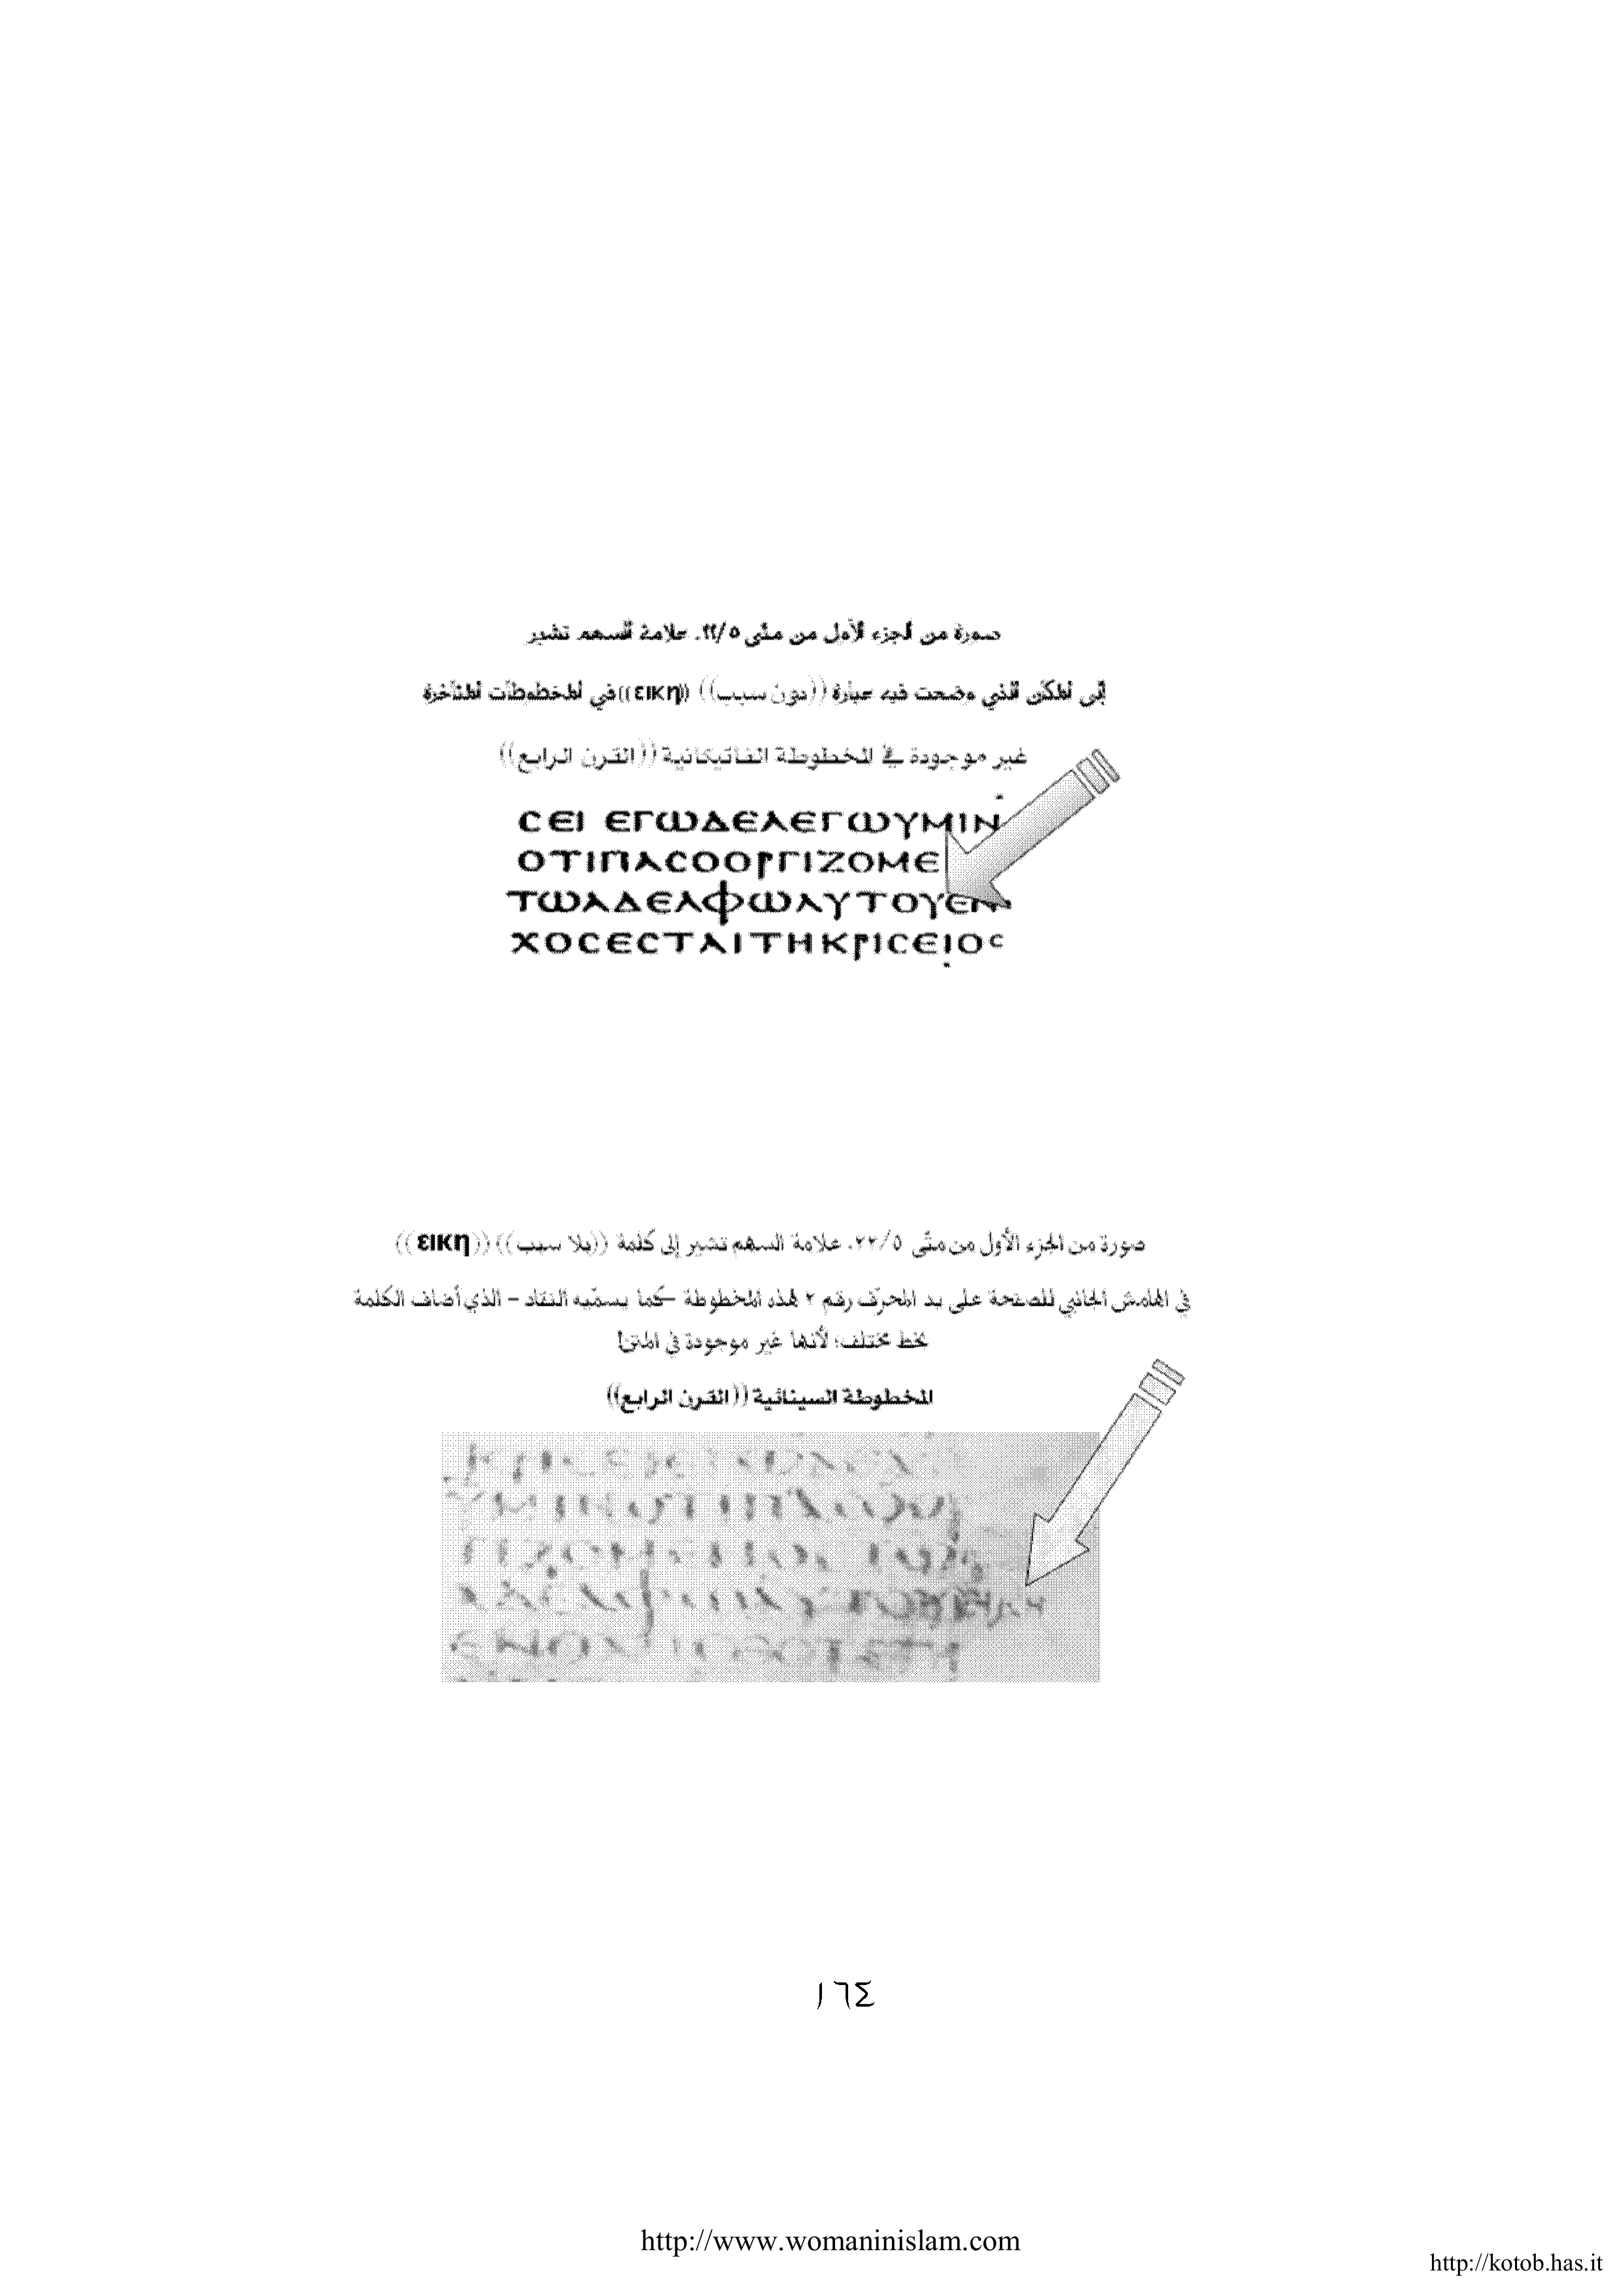 صورة من الجزء الأول من متّى ٢٢/٥. علامة السهم تشير
إلى المكان الذي وضعت فيه عبارة ((دون سبب)) ((εικη)) في المخطوطات المتأخرة
غير موجودة في المخطوطة الفاتيكانية ((القرن الرابع))
ϹΕΙ ΕΓΩΔΕΛΕΓΩΥΜΙΝ
ΟΤΙΠΑϹΟΟΡΓΙΖΟΜΕ
ΤΩΑΔΕΛΦΩΑΥΤΟΥΕΝ
ΧΟϹΕϹΤΑΙΤΗΚΡΙϹΕΙΟϹ
صورة من الجزء الأول من متّى ٢٢/٥. علامة السهم تشير إلى كلمة ((بلا سبب)) ((εικη))
في الهامش الجانبي للصفحة على يد المحرّف رقم ٢ لهذه المخطوطة -كما يسمّيه النقاد- الذي أضاف الكلمة
بخط مختلف؛ لأنها غير موجودة في المتن!
المخطوطة السينائية ((القرن الرابع))
١٦٤
http://www.womaninislam.com
http://kotob.has.it